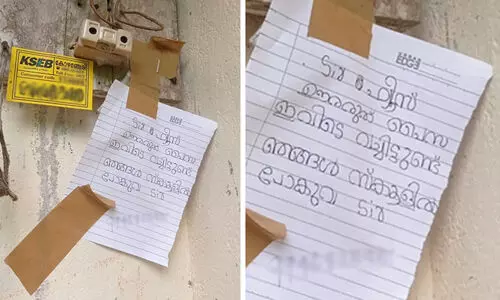 KSEB കോഴഞ്ചേരി
Consumer code
Sir ഫീസ്
ഊരരുത് പൈസ
ഇവിടെ വച്ചിട്ടുണ്ട്
ഞങ്ങൾ സ്ക്കൂളിൽ
പോകുവ Sir
Sir ഫീസ്
ഊരരുത് പൈസ
ഇവിടെ വച്ചിട്ടുണ്ട്
ഞങ്ങൾ സ്ക്കൂളിൽ
പോകുവ Sir